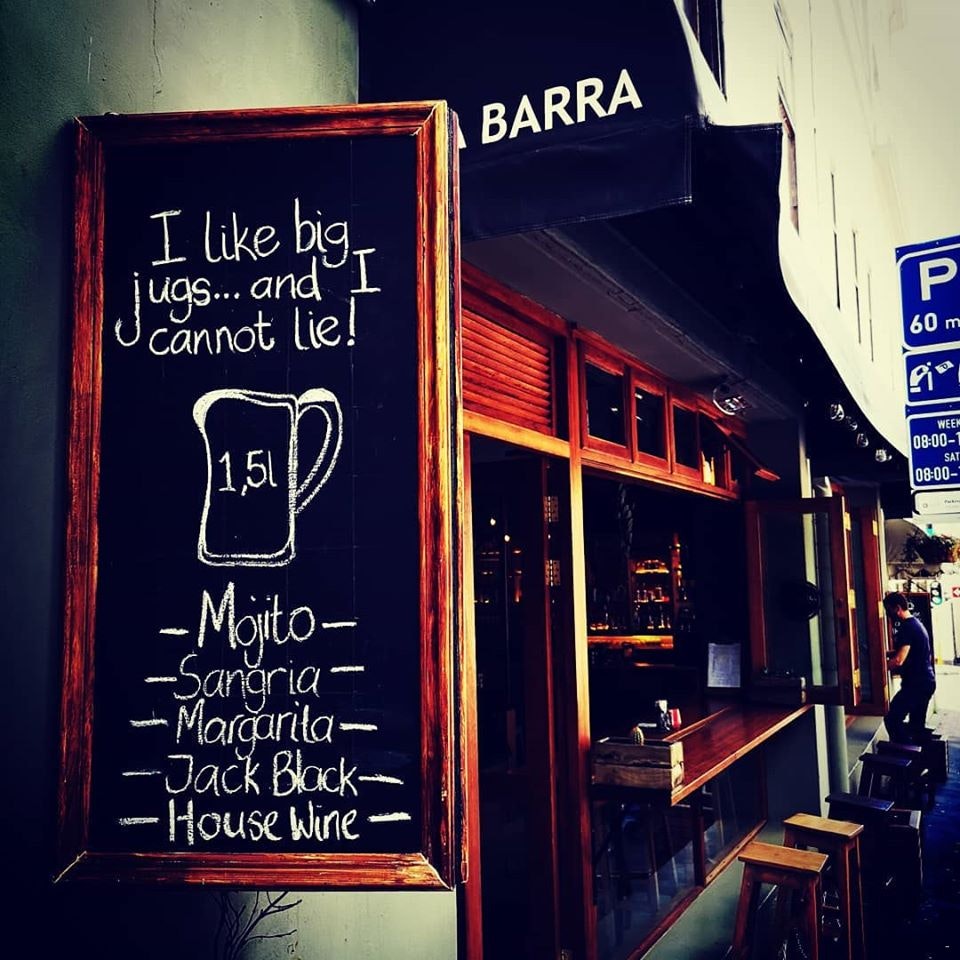 BARRA
I like big
jugs... and I
cannot lie!
1,5l
- Mojito -
- Sangria -
- Margarita -
- Jack Black -
- House Wine -
P
60 m
WEEK
08:00-1
SAT
08:00-1